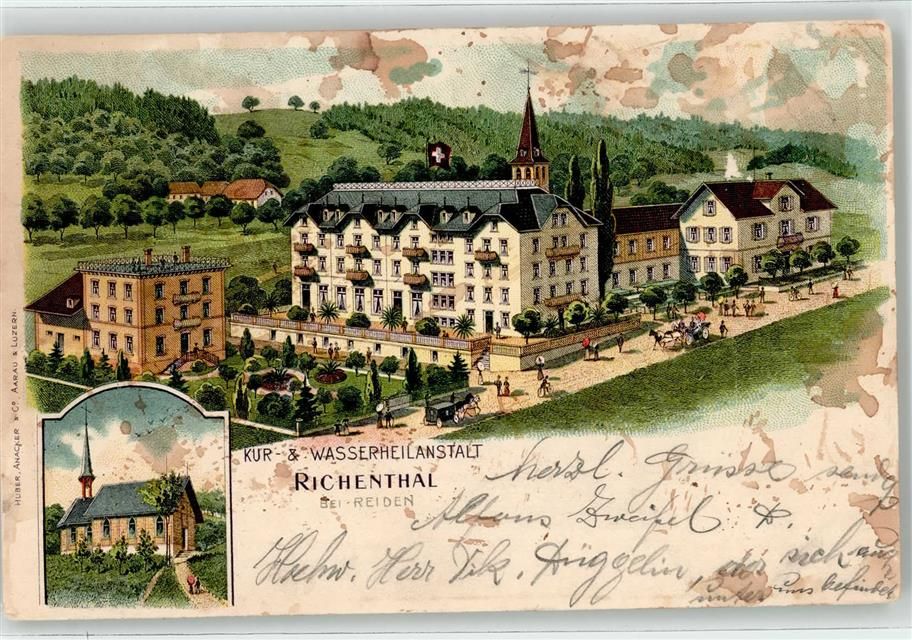 KUR- & WASSERHEILANSTALT
RICHENTHAL
BEI REIDEN
HUBER, ANACKER & Cº, AARAU & LUZERN.
herzl. Grüsse sendet
Alfons Zweifel
Hochw. Herr Vik. Düggelin, der sich auch
unter uns befindet